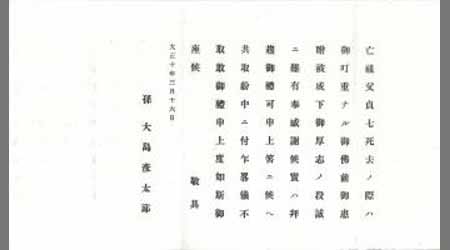 亡祖父貞七死去ノ際ハ
御叮重ナル御佛前御恵
贈被成下御厚志ノ段誠
ニ難有奉感謝候實ハ拜
趨御禮可申上筈ニ候ヘ
共取紛中ニ付乍畧儀不
取敢御禮申上度如斯御
座候　敬具
大正十年三月十六日
孫　大島彦太郎